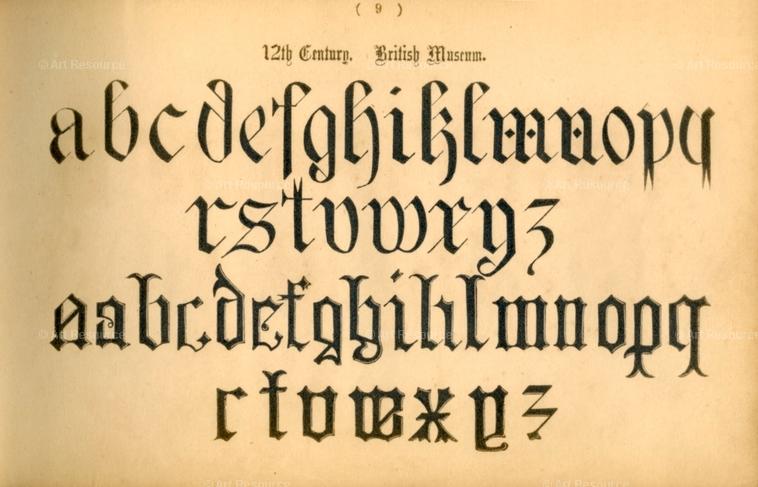 ( 9 )
12th Century. British Museum.
a b c d e f g h i k l m n o p q
r s t v w x y z
a a b c d e f g h i k l m n o p q
r t v w x y z
© Art Resource